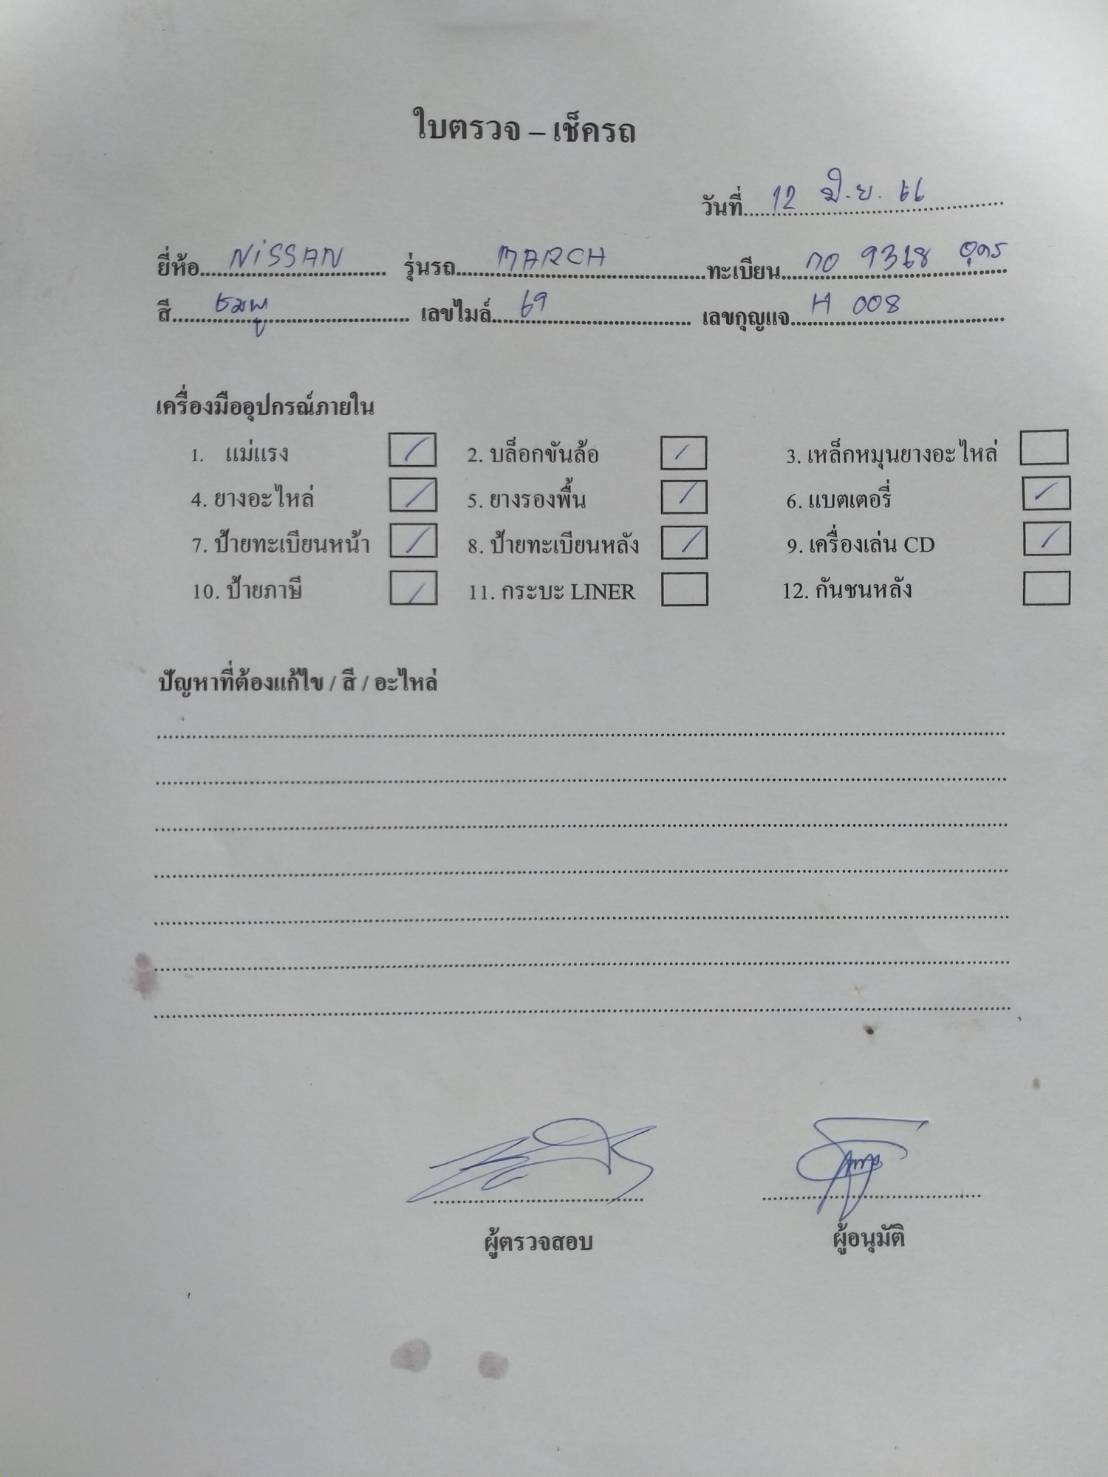 ใบตรวจ – เช็ครถ
วันที่ 12 มิ.ย. 66
ยี่ห้อ NiSSAN รุ่นรถ MARCH ทะเบียน กอ 9368 อุดร
สี ชมพู เลขไมล์ 69 เลขกุญแจ H 008
เครื่องมืออุปกรณ์ภายใน
1. แม่แรง 2. บล็อกขันล้อ 3. เหล็กหมุนยางอะไหล่
4. ยางอะไหล่ 5. ยางรองพื้น 6. แบตเตอรี่
7. ป้ายทะเบียนหน้า 8. ป้ายทะเบียนหลัง 9. เครื่องเล่น CD
10. ป้ายภาษี 11. กระบะ LINER 12. กันชนหลัง
ปัญหาที่ต้องแก้ไข / สี / อะไหล่
ผู้ตรวจสอบ ผู้อนุมัติ